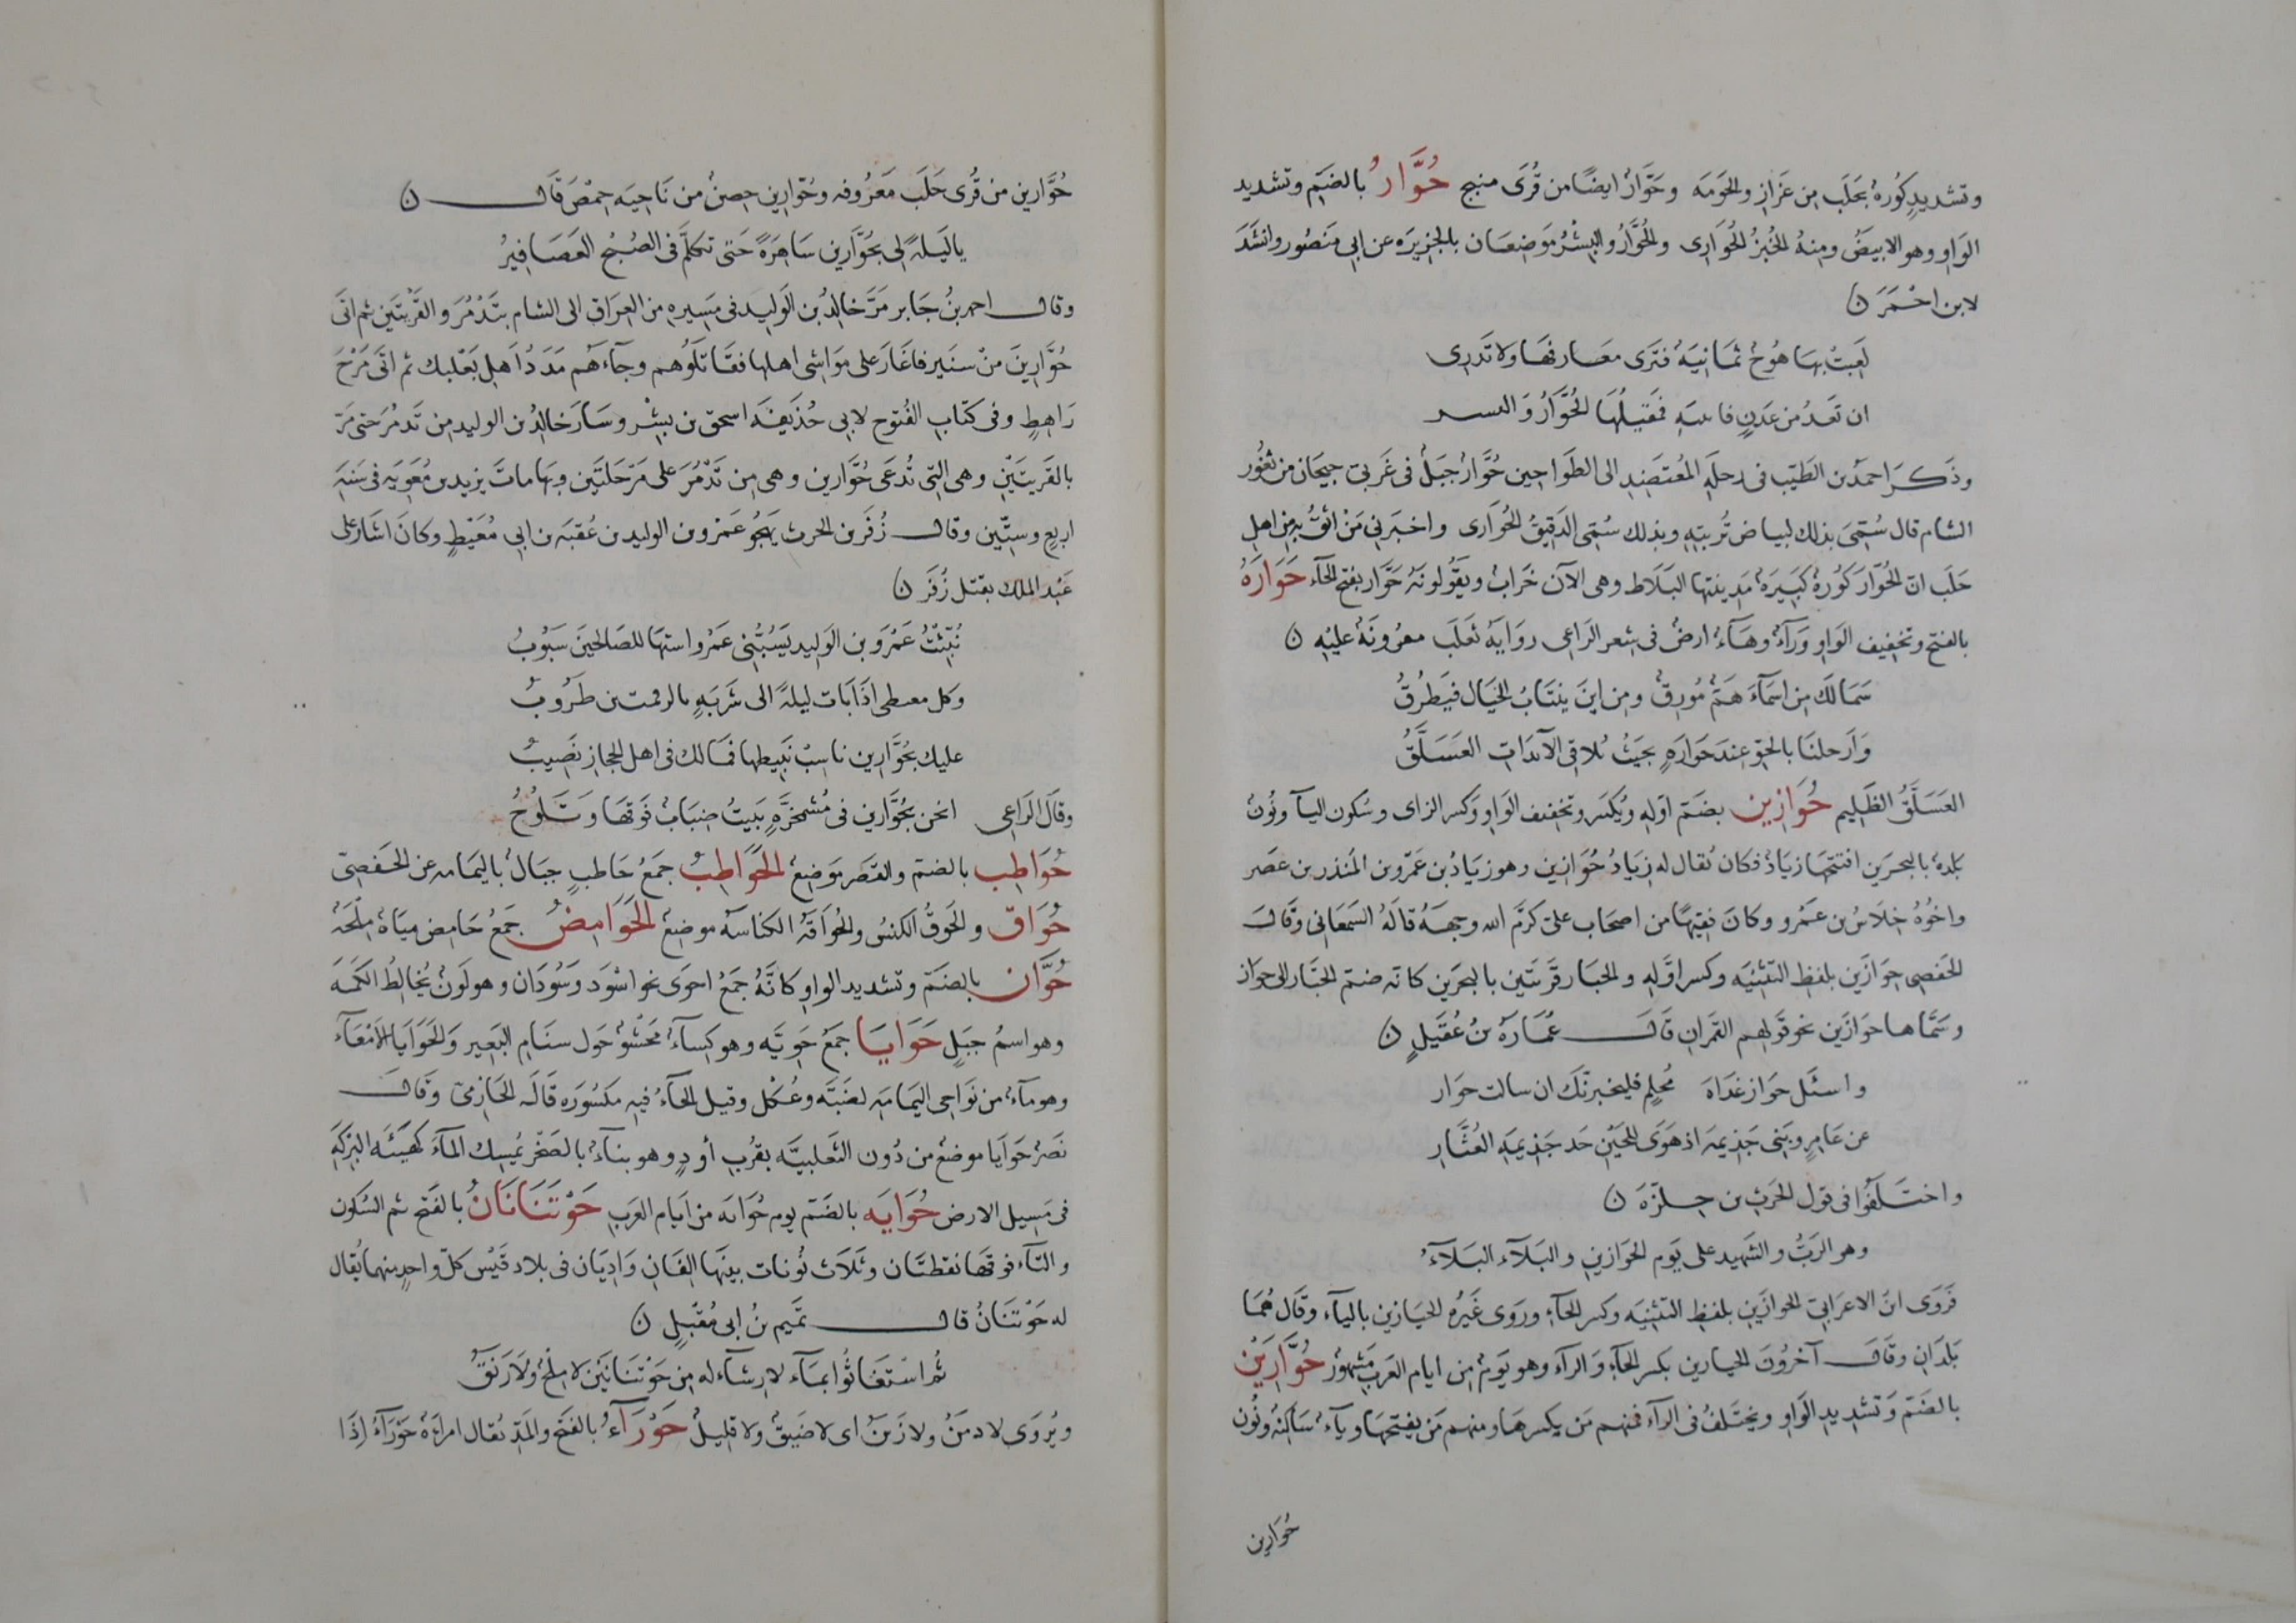 وتشديدٍ كُورة بحَلَب من عَزاز والحَومَه وحَوَّارُ ايضًا من قُرَى منبج حُوَّارُ بالضَم وتشديد
الوَاو وهو الابيضُ ومِنهُ الخُبزُ الحُوّارى والحُوَّارُ والبِشْرُ مَوضعَان بالجزيرَه عن ابى مَنصُور وانشَدَ
لابن احْمَرَ ن
لَعِبَتْ بهَا هُوجٌ ثمَانيَةٌ فترَى معَارفهَا ولا تَدرِى
ان تَعدُ من عَدنٍ فمَقيلُهَا الحُوَّارُ وَ
وذَكَرَ احمدُ بن الطَيّب فى رحلَهِ المُعتَضِد الى الطَوَاحين حُوَّارُ جَبَلٌ فى غَربى جيحَان من ثغُور
الشام قال سُمّىَ بذلك لبياض تُربتِهِ وبذلك سُمّى الدَقيقُ الحُوّارى واخبَرنى مَنْ اثقُ بهِ من اهلِ
حَلَب انّ الحُوّارَ كُورةٌ كَبيَرةٌ مَدِينتها البَلَاط وهى الآن خَرابٌ ويقُولونَهُ حَوَّار بفتح الحآء حَوَارَهُ
بالفتح وتخفيف الوَاو وَرآءٌ وهَآءٌ ارضٌ فى شعر الرَاعى روَايَهُ ثَعلَب مقرُوئَةٌ عليْهِ ن
سَمَا لَكَ مِن اسمَآءَ هَمٌّ مُورِقٌ ومِن اينَ ينتَابُ الخيَال فيَطرُقُ
وَارحلنَا بالجَوّ عندَ حَوَارَةٍ بحيَثُ يُلاقى الآبدَات العَسَلَّقُ
العَسَلَّقُ الظَليم حُوَازِين بضَمّ اوّله ويُكسَر وتخفيف الوَاو وكَسر الزاى وسُكون اليآ ونُونٌ
بَلدةٌ بالبحرَين افتتَحهَا زيَادٌ فكان يُقال له زيَادُ حُوَازِين وهو زيَادُ بن عَمْرو بن المُنذر بن عَصَر
واخُوهُ خِلَاسُ بن عمَرو وكانَ فقِيهًا من اصحَاب علىّ كرَّم الله وجهَهُ قالَهُ السَمعَانى وقَالَ
الحَفصِى حِوَازَين بلفظ التَثنيَه وكسر اوَّله والجبَار قَريَتين بالبحَرين كانه ضمّ الجبَار الى حوَاز
وسَمَّاها حوَازَين نحو قَولهم القمَران قَال عُمَارَةُ بنُ عُقَيلٍ ن
واسئَل حِوَاز غدَاةَ مُحلِم فليخبرنّكَ ان سالت حوَار
عن عَامِرٍ وبَنى جَذيمَه اذ هَوَى للحَيْن حَد جَذيمَهِ العُثَّارِ
واختَلفُوا فى قول الحَرثِ بن حِلزّةَ ن
وهو الرَبُّ والشَهيد على يَوم الحَوَازين والبَلآء البَلآءُ
فرَوَى ابنُ الاعرَابى الحوازَين بلفظ التثنيَه وكسر الحآءِ وروَى غَيرُه الحيَازين باليآء وقَال هُمَا
بَلَدَانِ وقَالَ آخرُونَ الحيارين بكسر الحآءِ وَالرآء وهو يَومٌ من ايام العَربِ مَشهُورٌ حُوَّارَيْن
بالضَمّ وَتشدِيدِ الوَاو ويختَلفُ فى الرآءِ فمنهم مَن يكسرهَا ومنهم مَن يفتحهَا ويآءٌ سَاكِنَةٌ ونُون
حُوّارين
حُوَّارين من قُرى حَلَب مَعَرُوفه وحُوَّارين حِصنٌ من نَاحيَه حِمْصَ قَال ن
يا ليَلةً لى بحُوَّارين سَاهِرَةً حَتى تكلَّم فى الصُبْح العَصَافِيرُ
وقال احمد بنُ جَابر مَرَّ خالِدُ بن الوَليد فى مَسِيرهِ من العِرَاق الى الشام بتَدْمُرَ والقَرْيتَين ثم اتَى
حُوَّارينَ منْ سنَير فاغَارَ على موَاشى اهلها فقَاتَلوُهم وجآءهم مَدَدُ اَهلِ بَعْلبك ثم اتَى مَرْجَ
رَاهِطٍ وفى كتَابِ الفُتوح لابى حُذَيفَه اسحق بن بِشْر وسَارَ خالِدُ بن الوليد من تَدمُرَ حتى مَرّ
بالقَريَتَيْن وهى التى تُدعَى حُوَّارين وهى من تَدْمُرَ على مَرْحَلتَين وبهَا ماتَ يزيد بن مُعَويَه فى سَنةِ
اربعٍ وستّين وقال زُفَر بن الحرث يهجُو عَمْرو بن الوليد بن عُقبَه بن ابى مُعَيْطٍ وكانَ اشَارَ على
عَبْد الملك بقتل زُفَرَ ن
نُبّئْتُ عَمْرَو بن الوَلِيد يَسُبُّنى عَمْرو استهَا للصَالحينَ سَبُوبُ
وكل معيطى اذَا بَات ليلةً الى شَربَةٍ طَرُوبُ
عليك بحُوَّارين ناسِبْ نَبيطها فمَالك فى اهل الحجاز نَصِيبُ
وقَالَ الرَاعى انخن بحُوَّارين فى مُشمخرَّةٍ يَبيتُ ضبَابٌ فَوقهَا وَثَلُوجُ
حُوَاطِب بالضمّ والقصَر مَوَضِعٌ الحَوَاطِبُ جمَعُ حَاطبٍ جبَالٌ باليَمامه عن الحَفصِىّ
حُوَاق والحَوقُ الكنسُ والحُوَاقَهُ الكنَاسَهُ موضِعٌ الحَوَامِضُ جمَعُ حَامِض ميَاهٌ مِلحَهٌ
حُوَّان بالضَمّ وتشديد الواو كانّهُ جَمعُ احوَى نحو اسْوَد وَسُودَان وهو لَونٌ يُخالِطُ الكمَه
وهو اسمُ جبَلٍ حَوَايَا جمَعُ حَويَّه وهو كِسآءٌ مَحَشوٌ حَول سنَامِ البَعِير وَالحَوَايَا الامْعَآء
وهو مآءٌ من نوَاحى اليمَامَه لضَبَّه وعُكل وقيل الحآءُ فيه مكسُورَه قَالَه الحَازمىّ وقَال
نَصرٌ حوَايَا موضعٌ من دُون الثَعلبيَّه بقُربِ أودٍ وهو بنَآءٌ بالصَخر يُمسِك المآءَ كهيَئَه البِركَه
فى مَسِيل الارض حُوَايَه بالضَمّ يوم حُوَايَه من ايَام العَربِ حَوْتَنَانَانُ بالفَتح ثم السُكون
والتآء فوقهَا نقطتَان وثَلاث نُونات بينَهَا الفَانِ وَادِيَان فى بلاد قَيْس كلّ واحدٍ منهما يُقال
له حَوْتنَانُ قال تمَيم بنُ ابى مُقبِلٍ ن
ثُم اسْتَغَاثُوا بمَآء لا رِشآء له مِن حَوْتنَانَيْن لا مِلْحٌ ولَا رَنَقُ
ويُروَى لا دمَنٌ ولا زَنَنٌ اى لا ضَيقٌ ولا قليلٌ حَوْرَآءُ بالفَتح والمَدّ يُقال امرَاةٌ حَوْرَآءُ اِذَا